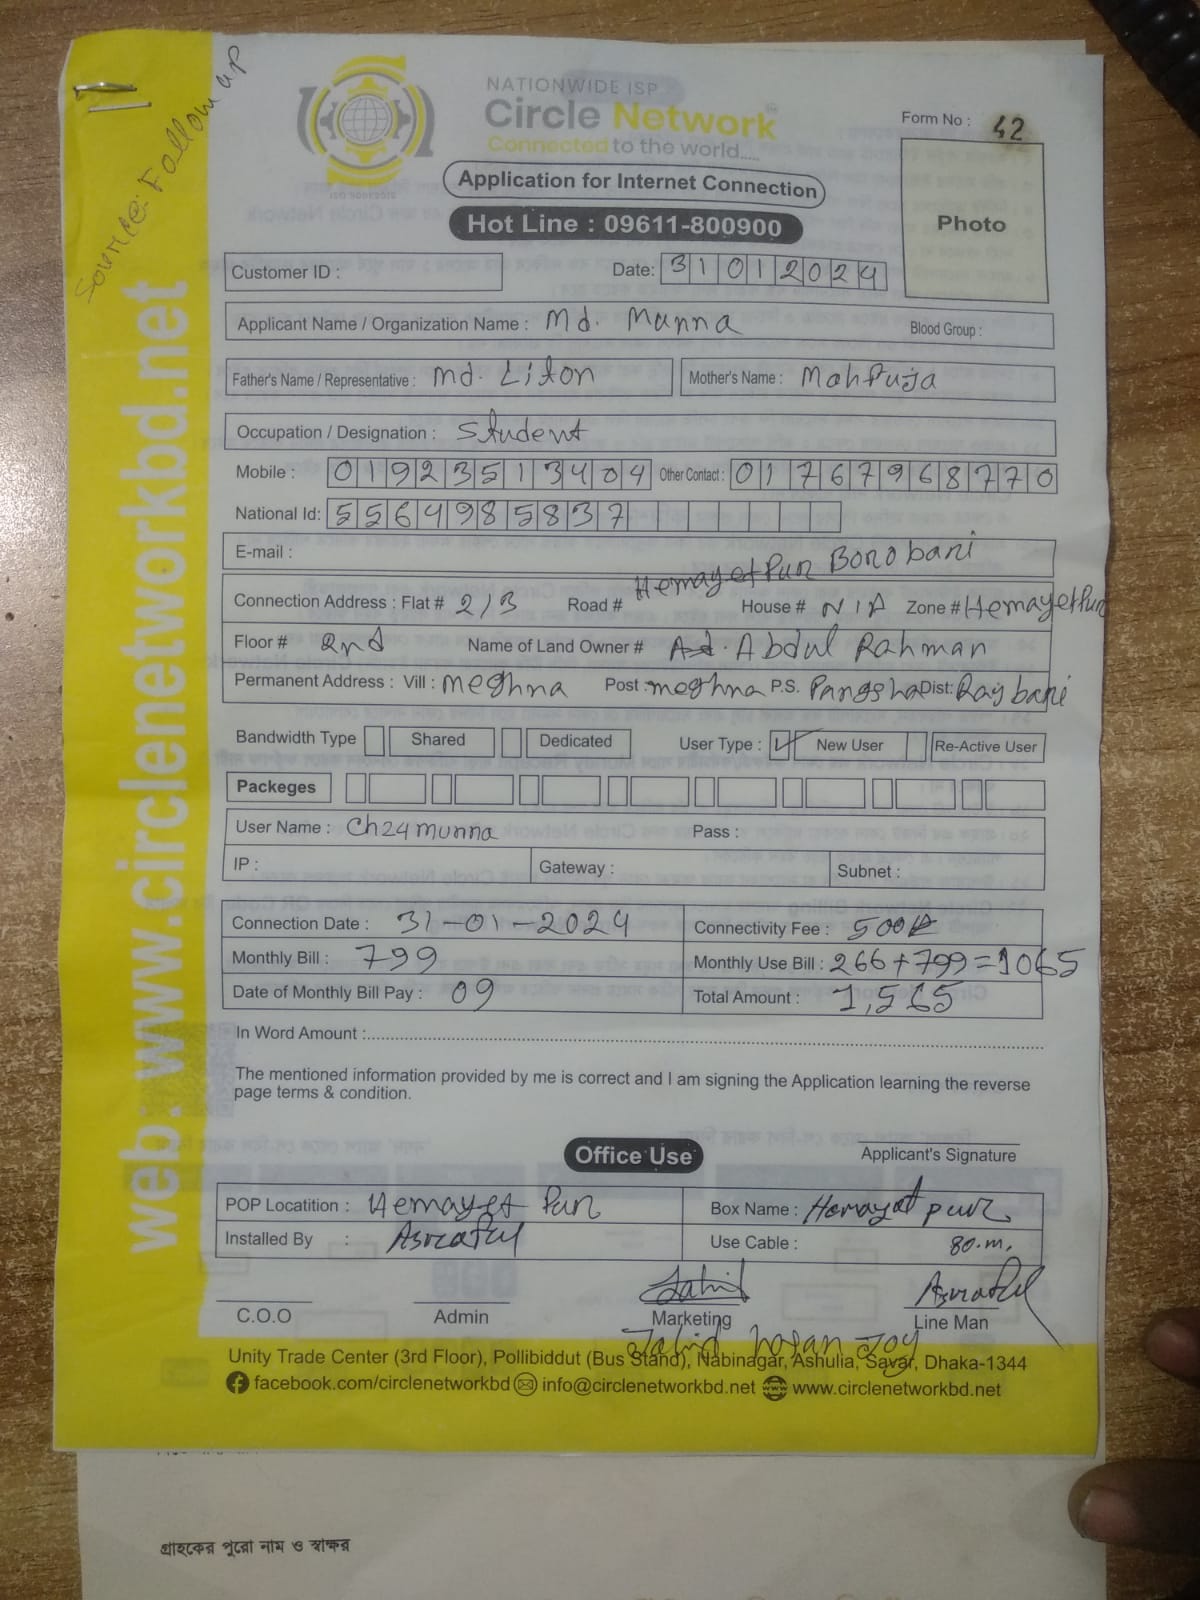 Source: Follow up
NATIONWIDE ISP
Circle Network
Connected to the world.....
Form No : 42
Application for Internet Connection
Photo
Hot Line : 09611-800900
Customer ID :
Date: 31012024
Applicant Name / Organization Name : Md. Munna Blood Group :
Father's Name / Representative : Md. Liton Mother's Name : Mahfuja
Occupation / Designation : Student
Mobile : 01923513404 Other Contact : 01767968770
National Id: 5564985837
E-mail :
Hemayetpur Borobari
Connection Address : Flat # 2/3 Road # House # N/A Zone # Hemayetpur
Floor # 2nd Name of Land Owner # Abdul Rahman
Permanent Address : Vill : Meghna Post : meghna P.S. Pangsha Dist: Rajbari
Bandwidth Type Shared Dedicated User Type : New User Re-Active User
Packeges
User Name : Ch24munna Pass :
IP : Gateway : Subnet :
Connection Date : 31-01-2024 Connectivity Fee : 500
Monthly Bill : 799 Monthly Use Bill : 266+799=1065
Date of Monthly Bill Pay : 09 Total Amount : 1,565
In Word Amount :
The mentioned information provided by me is correct and I am signing the Application learning the reverse
page terms & condition.
Office Use
Applicant's Signature
POP Locatition : Hemayet Pur Box Name : Hemayet pur
Installed By : Asraful Use Cable : 80.m.
Jahid Asraful
C.O.O Admin Marketing Line Man
Jahid hasan Joy
Unity Trade Center (3rd Floor), Pollibiddut (Bus Stand), Nabinagar, Ashulia, Savar, Dhaka-1344
facebook.com/circlenetworkbd info@circlenetworkbd.net www.circlenetworkbd.net
web: www.circlenetworkbd.net
গ্রাহকের পুরো নাম ও স্বাক্ষর